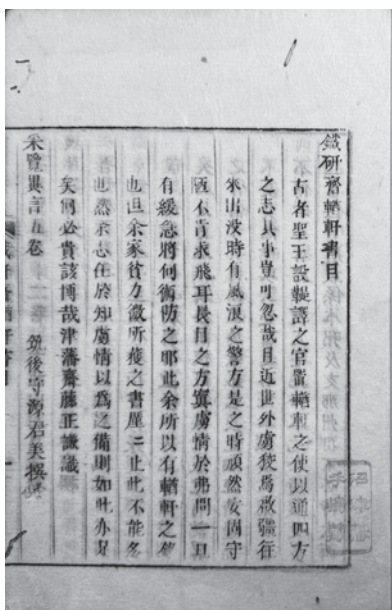 鐵研齋輶軒書目
古者聖王設鞮譯之官置輶軒之使以通四方
之志其事豈可忽哉且近世外虜稅為啟疆往
來出没時有風浪之警方是之時頑然安固守
恆不肯求飛耳長目之方寘虜情於弗問一旦
有緩急將何術防之耶此余所以有輶軒之使
也但余家貧力微所獲之書厪二止此不能多
也然余志在於知虜情以為之備則如此亦足
矣何必貴該博哉津藩齋藤正謙識
采覽異言五卷 筑後守源君美撰